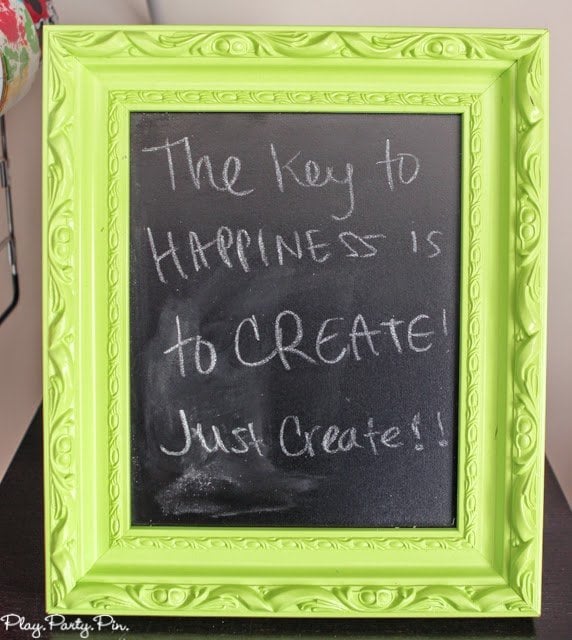 The Key to
HAPPINESS is
to CREATE!
Just Create!!
Play.Party.Pin.